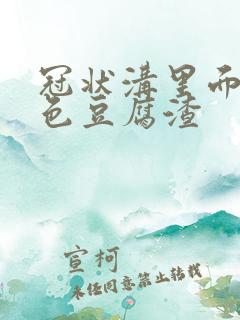 冠状溝里面白
色豆腐渣
宣柯
未经同意禁止转载